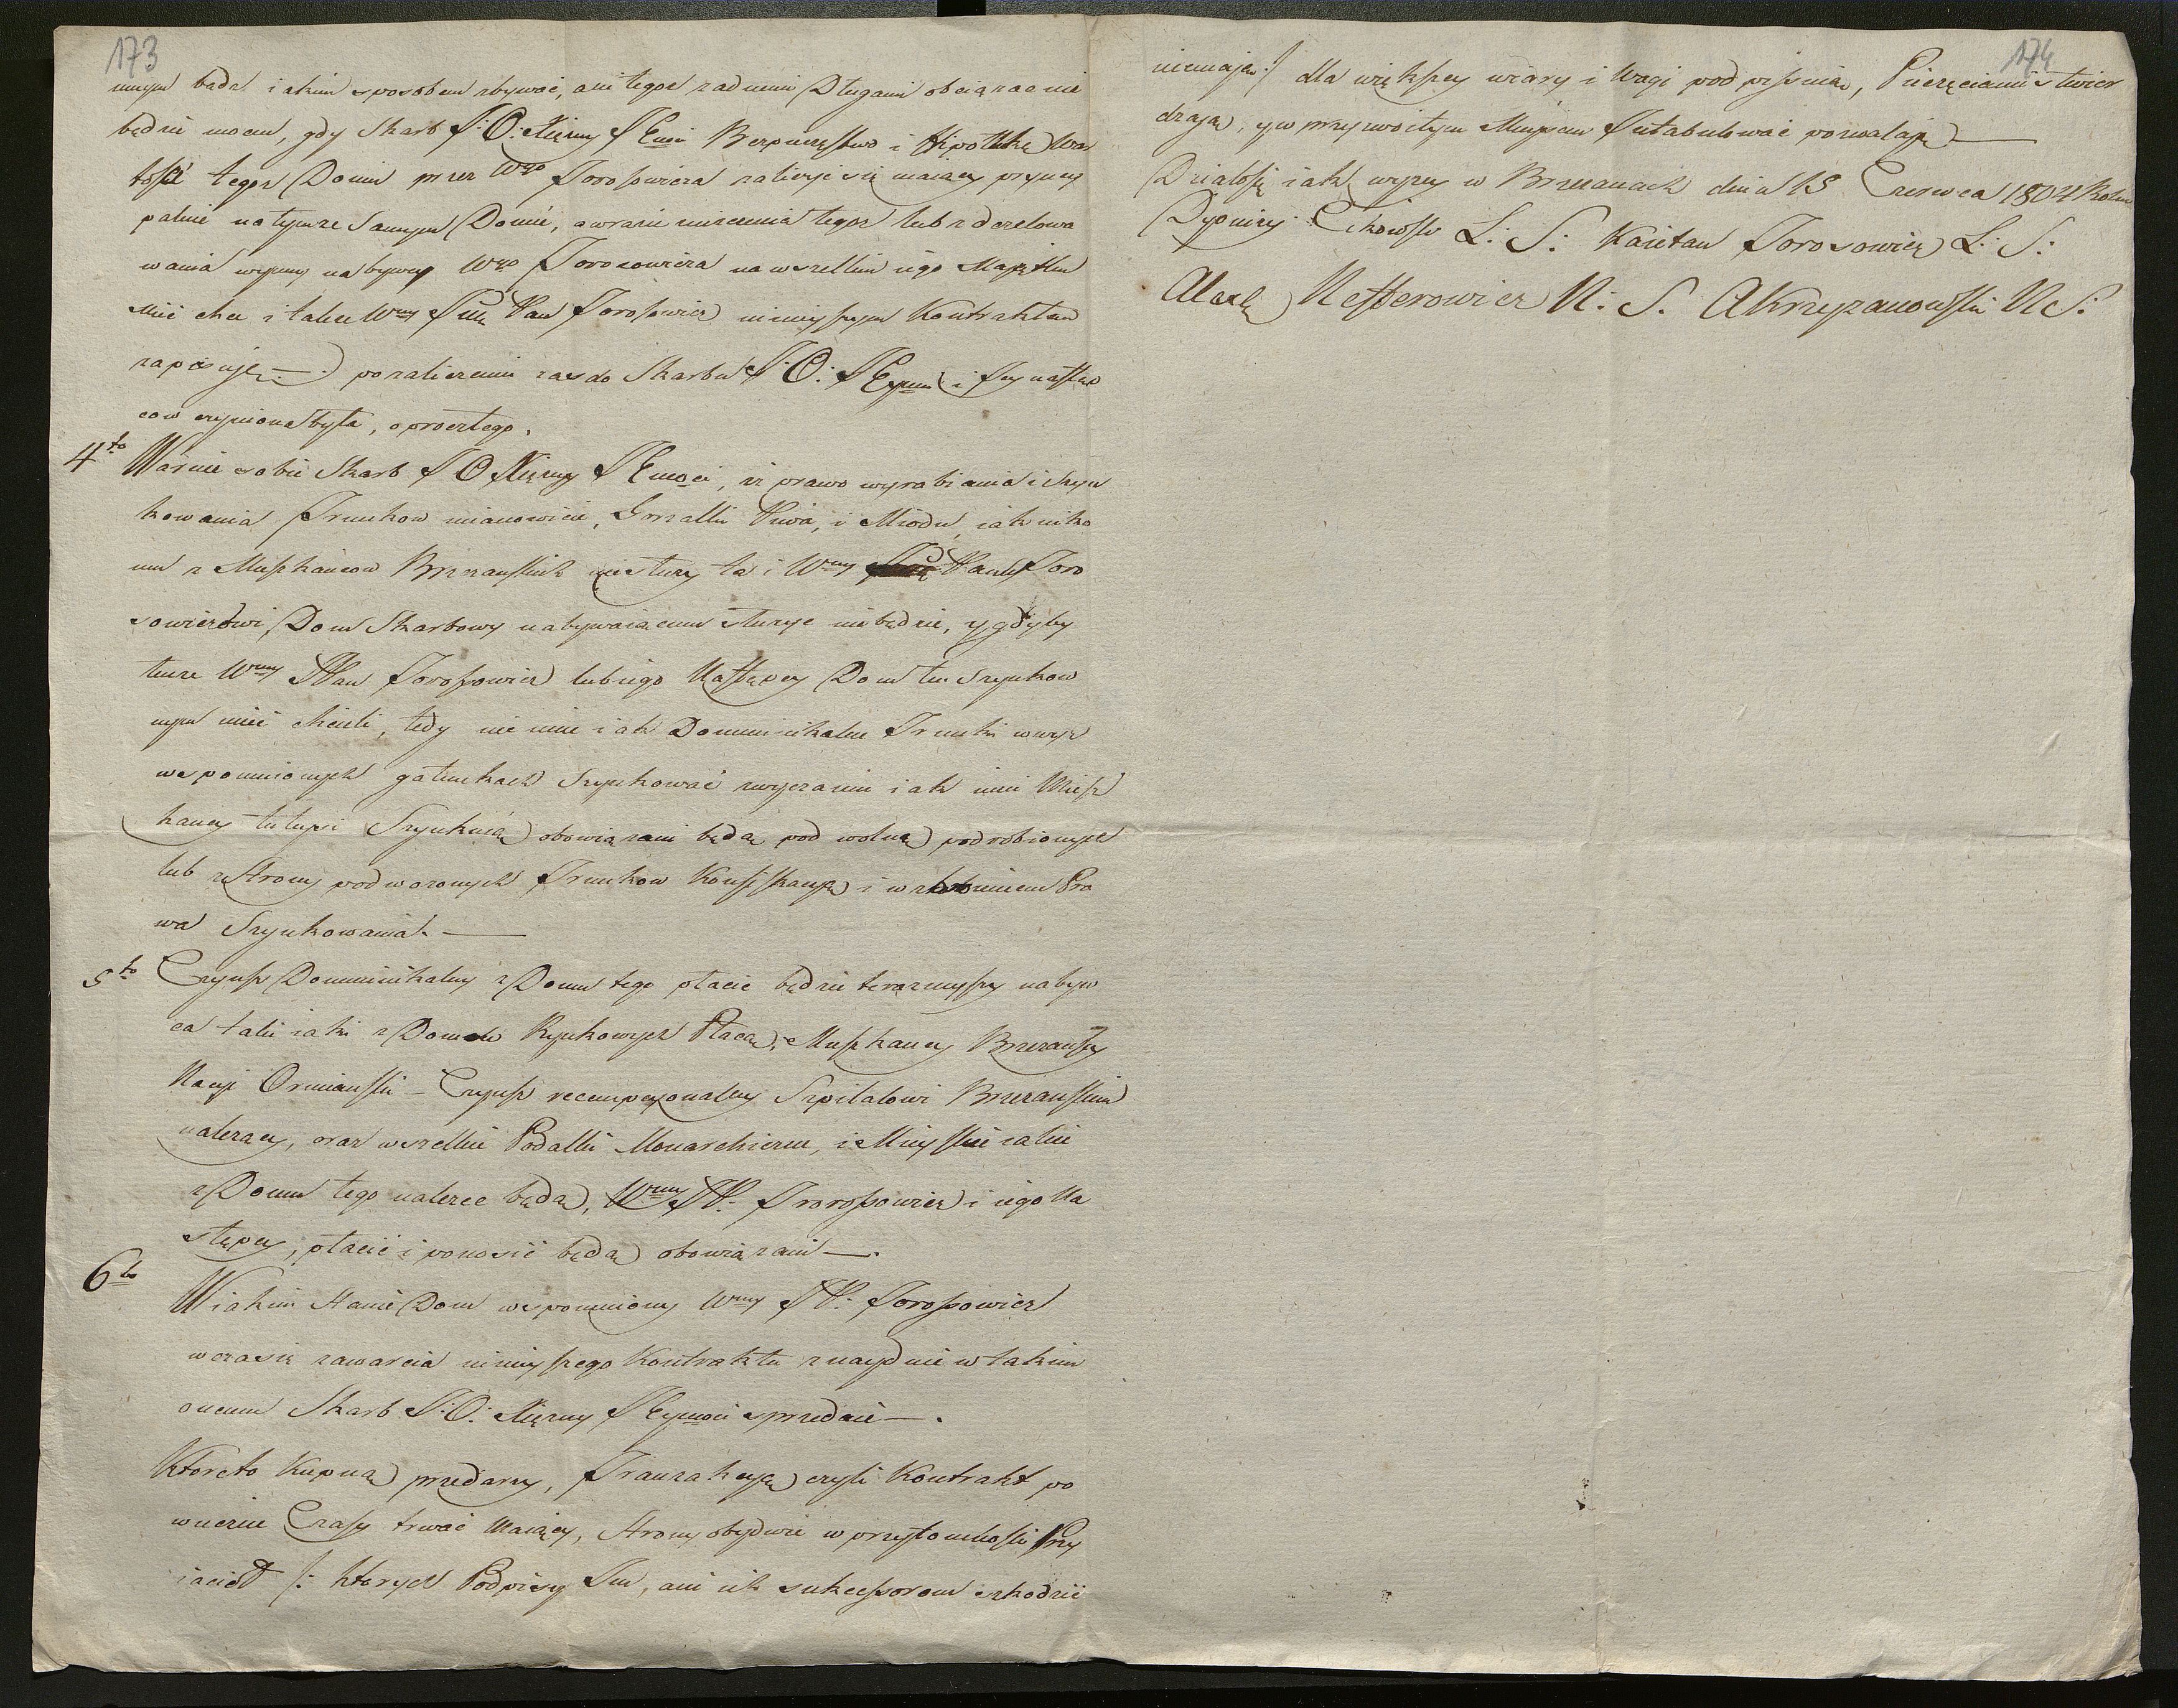 173
innym bądź iakim sposobem zbywać, ani tegoż żadnemi Długami obciążać nie
będzie mocen, gdy Skarb J: O: Xiężny JEmci Bezpieczęstwo i Hipotekę War
tości tegoż Domu przez Wgo Torosowicza zaliczyć się maiącey pryncy
palnie na tymże Samym Domie, a w razie zniszczenia tegoż lub zdezelowa
wania wyższey nabywcy Wgo Torosowicza na wszelkim iego Maiątku
mieć chce i takie Wmy Pan Torosowicz ninieyszym Kontraktem
zapisuje — po zaliczeniu zaś do Skarbu J: O: JEymci i Jey następ
ców czyniona była, oprócz tego.
4to Waruie sobie Skarb J O Xiężny JEmości, iż prawo wyrobiania i Szyn
kowania Trunkow mianowicie, Gorzałki Piwa, i Miodu, iak niko
mu z Mieszkańcow Brzeżanskich nie służy ta i Wmu Panu Toro
sowiczowi Dom Skarbowy nabywaiącemu służyć nie będzie, y gdyby
tenże Wmy JPan Torosowicz lub iego Następcy Dom ten Szynkow
nym mieć chcieli, tedy nie inne iak Dominikalne Trunki w wyż
wspomnionych gatunkach Szynkować zwyczaiem iak inni Miesz
kancy tuteysi Szynkuią obowiązani będą pod wolną podrobionych
lub z Strony podwożonych Trunkow Konfiskacyą i wzbronieniem Pra
wa Szynkowania. —
5to Czynsz Dominikalny z Domu tego płacić będzie teraznieyszy nabyw
ca taki iaki z Domow Rynkowych Płacą, Mieszkancy Brzezanscy
Nacyi Ormianskiey — Czynsz recempcyonalny Szpitalowi Brzezanskiemu
należący, oraz wszelkie Podatki Monarchiczne, i Mieyskie iakie
z Domu tego należeć będą, Wmy JP. Torosowicz i iego Na
stępcy, płacić i ponosić będą obowiązani —.
6to W iakim stanie Dom wspomniony Wmy JP: Torosowicz
w czasie zawarcia ninieyszego Kontraktu znaydzie w takim
onemu Skarb J: O: Xiężny JEymości sprzedaie —.
Ktorę to Kupna przedaży, Tranzakcyą czyli Kontrakt po
wieczne Czasy trwać Maiący, Strony obydwie w przytomności Przy
iacioł /: ktorych Podpisy Im, ani ich sukcessorom szkodzić
174
niemaią :/ dla większey wiary i Wagi podpisuią, Pieczęciami stwier
dzają, y w przyzwoitym Mieyscu Intabulować pozwalają —
Działo się iak wyżey w Brzezanach dnia 15 Czerwca 1804 Roku
Dyonizy L: S: Kaietan Torosowicz L: S:
Nefferowicz N: S. AKrzyzanowski N S: